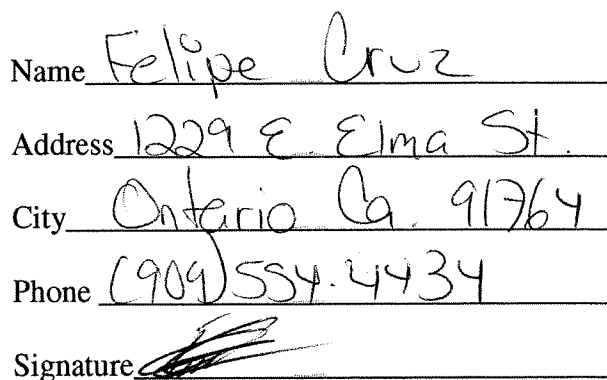 Name Felipe Cruz
Address 1229 E. Elma St.
City Ontario Ca. 91764
Phone (909) 554-4434
Signature